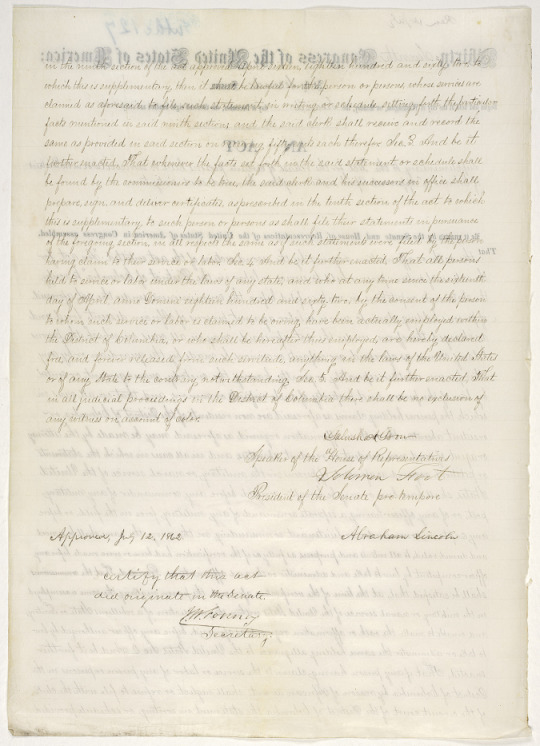 in the ninth section of the act approved April sixteen, eighteen hundred and sixty two to
which this is supplementary, then it shall be lawful for the person or persons, whose services are
claimed as aforesaid, to file such statement in writing or schedule setting forth the particular
facts mentioned in said ninth section; and the said clerk shall receive and record the
same as provided in said section on receiving fifty cents each therefor. Sec. 3. And be it
further enacted, That whenever the facts set forth in the said statement or schedule shall
be found by the commissioners to be true, the said clerk and his successors in office shall
prepare, sign, and deliver certificates, as prescribed in the tenth section of the act to which
this is supplementary, to such person or persons as shall file their statements in pursuance
of the foregoing section, in all respects the same as if such statements were filed by the person
having claim to their service or labor. Sec. 4. And be it further enacted, That all persons
held to service or labor under the laws of any state, and who at any time since the sixteenth
day of April, anno Domini eighteen hundred and sixty two, by the consent of the person
to whom such service or labor is claimed to be owing, have been actually employed within
the District of Columbia, or who shall be hereafter thus employed, are hereby declared
free, and forever released from such servitude, anything in the laws of the United States
or of any State to the contrary notwithstanding. Sec. 5. And be it further enacted, That
in all judicial proceedings in the District of Columbia there shall be no exclusion of
any witness on account of color.
Galusha A Grow
Speaker of the House of Representatives
Solomon Foot
President of the Senate pro tempore
Approved, July 12, 1862
Abraham Lincoln
certify that this act
did originate in the Senate.
J W Forney
Secretary